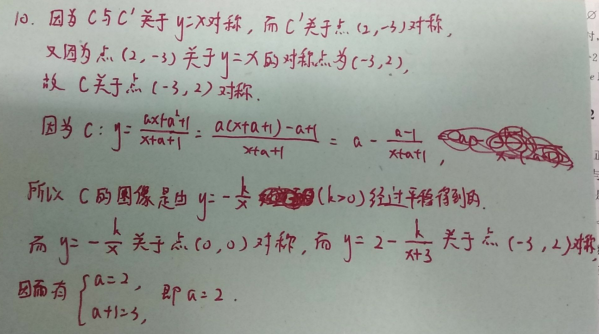 10. 因为 C 与 C' 关于 y=x 对称, 而 C' 关于点 (2,-3) 对称,
又因为点 (2,-3) 关于 y=x 的对称点为 (-3,2),
故 C 关于点 (-3,2) 对称.
因为 C: y = (ax+a²+1)/(x+a+1) = (a(x+a+1)-a+1)/(x+a+1) = a - (a-1)/(x+a+1),
所以 C 的图像是由 y = -k/x (k>0) 经过平移得到的.
而 y = -k/x 关于点 (0,0) 对称, 而 y = 2 - k/(x+3) 关于点 (-3,2) 对称,
因而有 { a=2, a+1=3, 即 a=2.